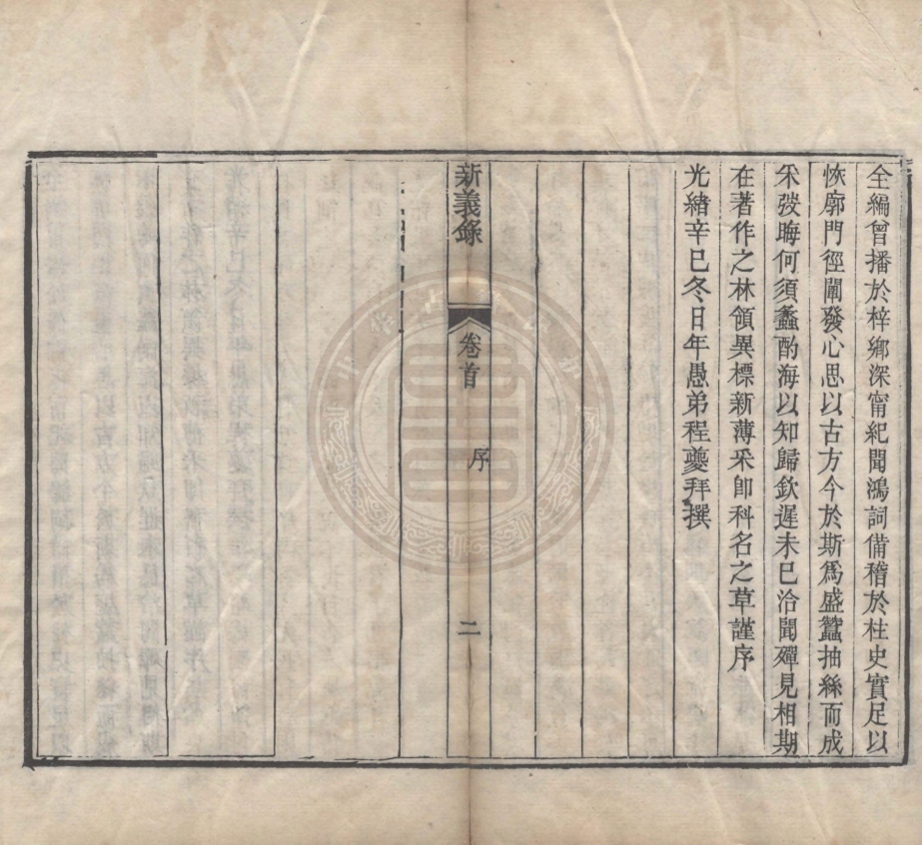 全編曾播於梓鄉深甯紀聞鴻詞備稽於柱史實足以
恢廓門徑闡發心思以古方今於斯為盛蠶抽絲而成
采發晦何須蠡酌海以知歸欽遲未已洽聞殫見相期
在著作之林領異標新薄采卽科名之草謹序
光緒辛巳冬日年愚弟程夔拜撰
新義錄
卷首
序
二